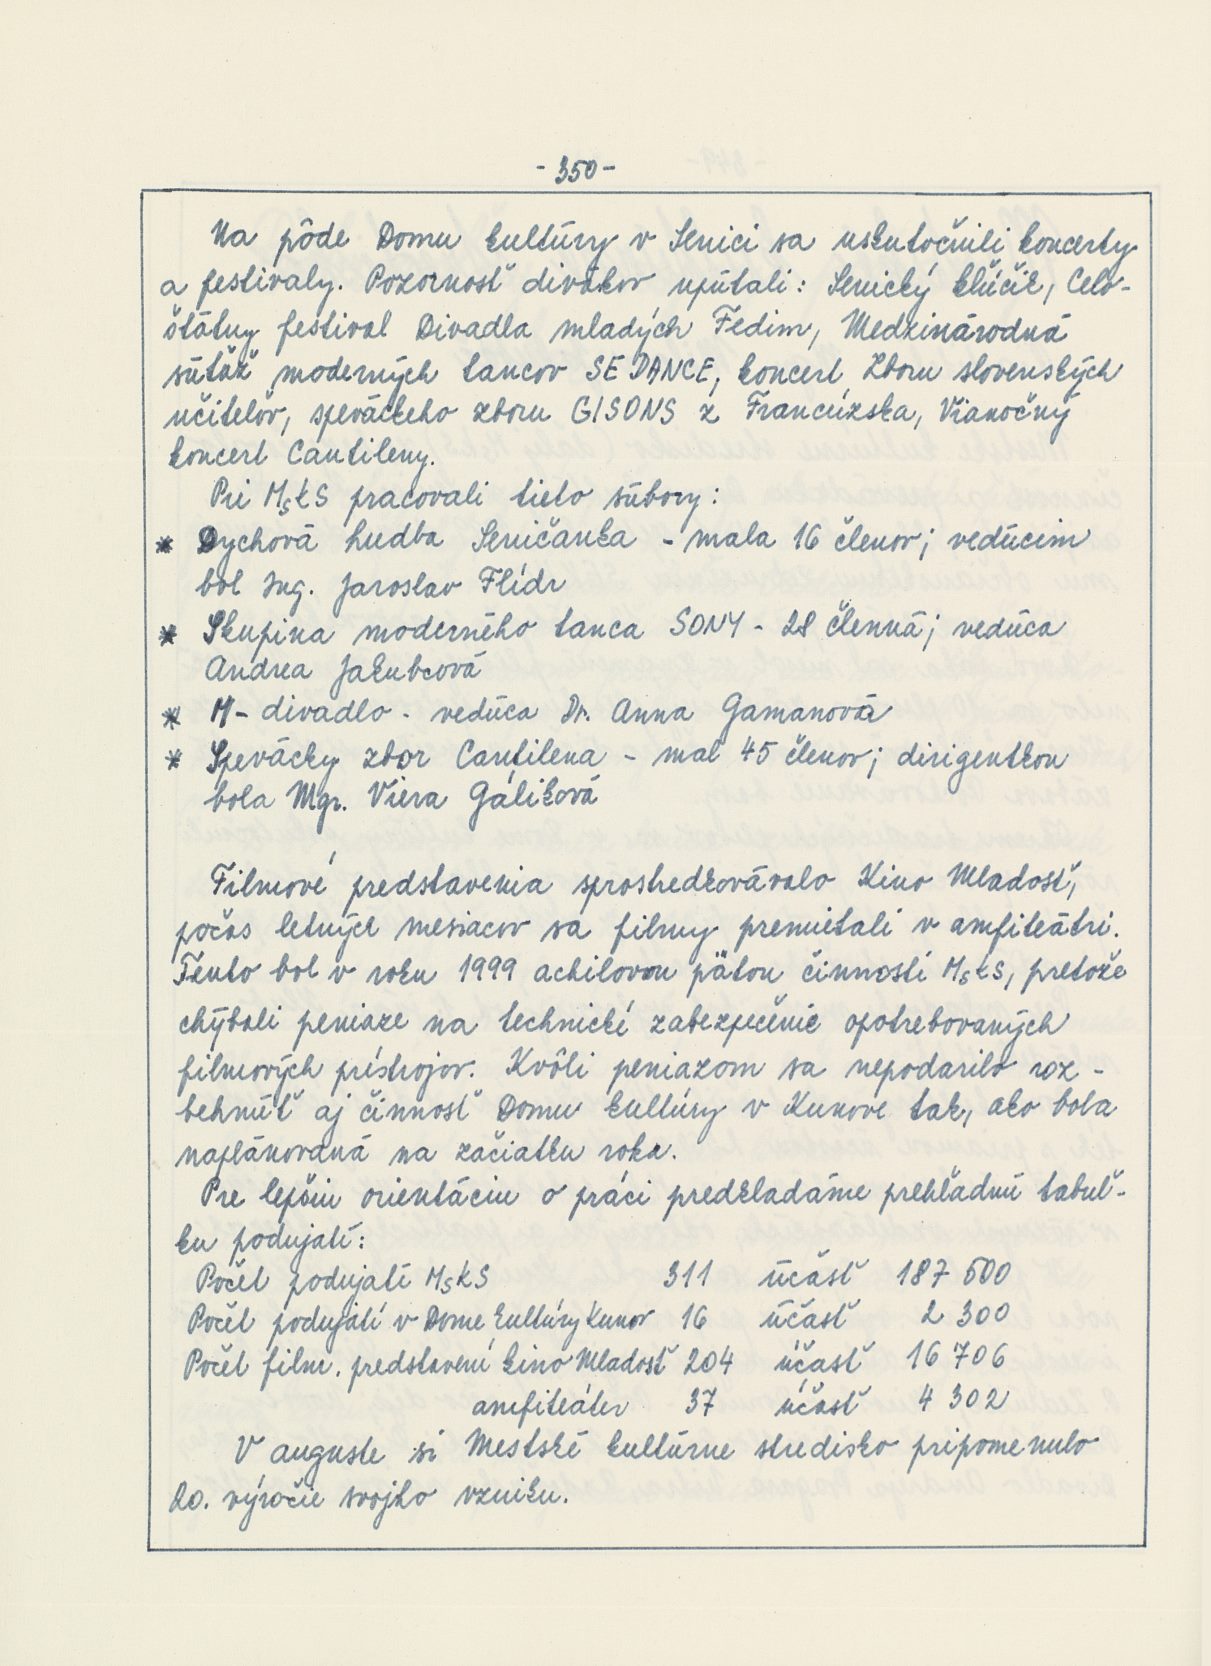 - 350 -
Na pôde Domu kultúry v Senici sa uskutočnili koncerty
a festivaly. Pozornosť divákov upútali: Senický kľúčik, Celo-
štátny festival Divadla mladých Fedim, Medzinárodná
súťaž moderných tancov SE DANCE, koncert Zboru slovenských
učiteľov, speváckeho zboru GISONS z Francúzska, Vianočný
koncert Cantileny.
Pri MsKS pracovali tieto súbory:
* Dychová hudba Seničanka - mala 16 členov; vedúcim
bol Ing. Jaroslav Flídr
* Skupina moderného tanca SONY - 28 členná; vedúca
Andrea Jakubcová
* M - divadlo - vedúca Dr. Anna Gamanová
* Spevácky zbor Cantilena - mal 45 členov; dirigentkou
bola Mgr. Viera Gáliková
Filmové predstavenia sprostredkovávalo Kino Mladosť,
počas letných mesiacov sa filmy premietali v amfiteátri.
Tento bol v roku 1999 achilovou pätou činnosti MsKS, pretože
chýbali peniaze na technické zabezpečenie opotrebovaných
filmových prístrojov. Kvôli peniazom sa nepodarilo roz-
behnúť aj činnosť Domu kultúry v Kunove tak, ako bola
naplánovaná na začiatku roka.
Pre lepšiu orientáciu o práci predkladáme prehľadnú tabuľ-
ku podujatí:
Počet podujatí MsKS 311 účasť 187 500
Počet podujatí v Dome kultúry Kunov 16 účasť 2 300
Počet film. predstavení kino Mladosť 204 účasť 16 706
amfiteáter 37 účasť 4 302
V auguste si Mestské kultúrne stredisko pripomenulo
20. výročie svojho vzniku.